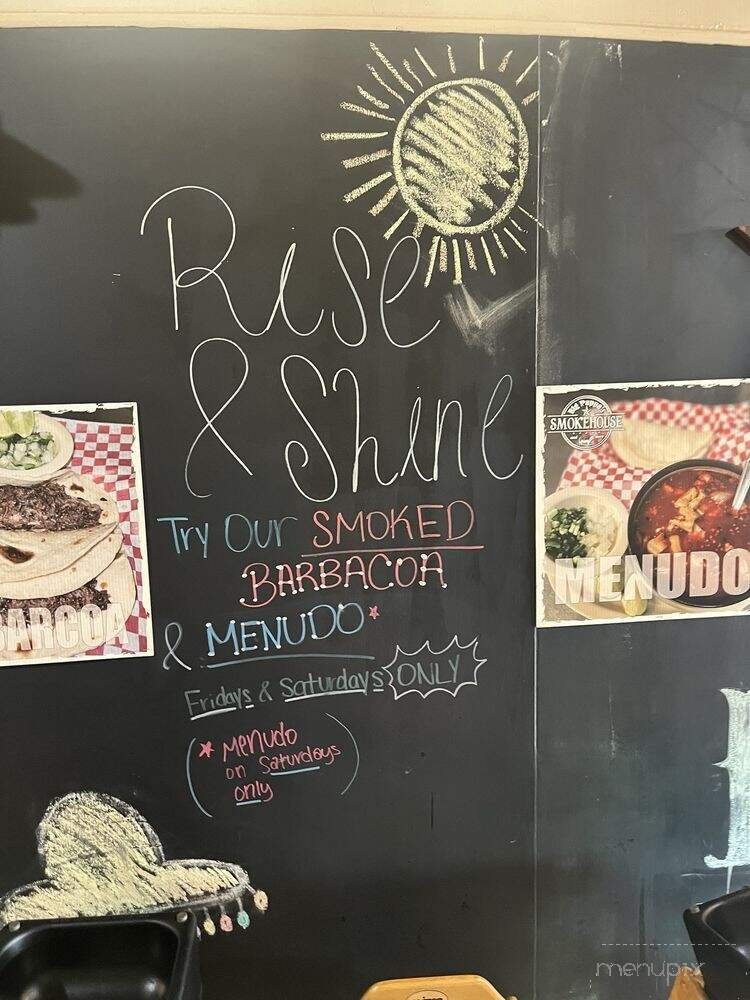 Rise
& Shine
Try Our SMOKED
BARBACOA
& MENUDO*
Fridays & Saturdays ONLY
(* Menudo
on Saturdays
only)
BARCOA
Big Poppa's
SMOKEHOUSE
MENUDO
menupix